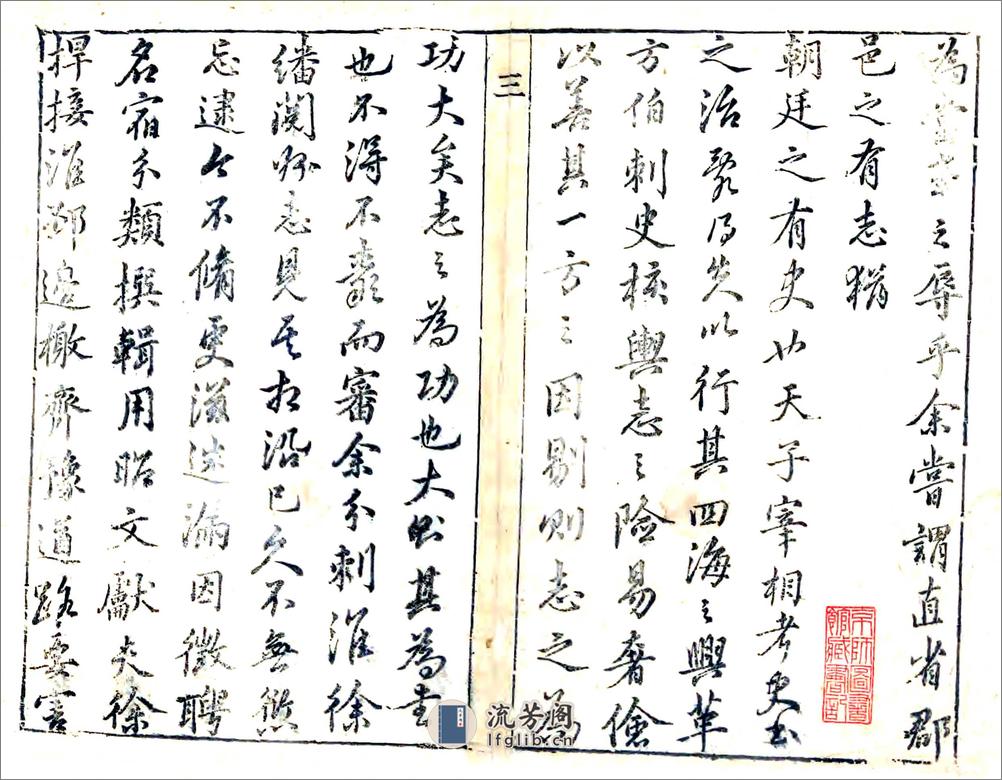 為當事之辱乎余嘗謂直省郡
邑之有志猶
朝廷之有史也天子宰相考史書
之治亂得失以行其四海之興革
方伯刺史核輿志之險易奢儉
以善其一方之因剔則志之為
三
功大矣志之為功也大則其為書
也不得不嚴而審余分刺淮徐
繙閱州志見其相沿已久不無
忘逮今不脩更滋遺漏因徵聘
名宿分類撰輯用昭文獻夫徐
捍接淮鄒邊檄齊豫道路要害
京師圖書館藏書記
流芳閣
lfglib.cn